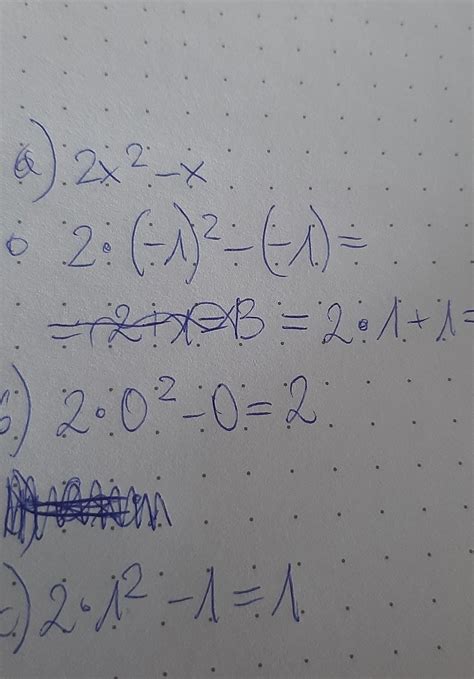 a) 2x² - x
2·(-1)² - (-1) =
= 2·1 + 1 =
b) 2·0² - 0 = 2
c) 2·1² - 1 = 1